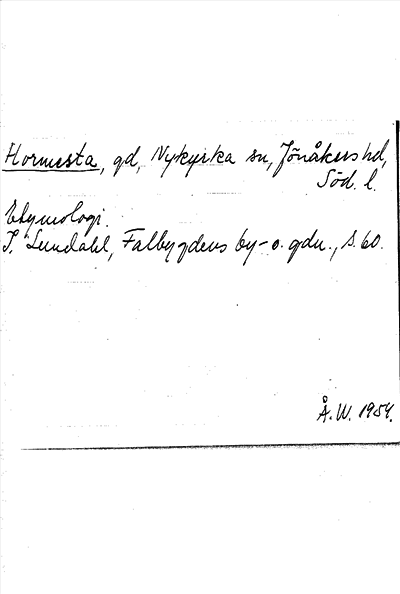 Hormesta, gd, Nykyrka sn, Jönåkers hd,
Söd. l.
Etymologi.
I. Lundahl, Falbygdens by- o. gdn., s. 60.
Å. W. 1954.